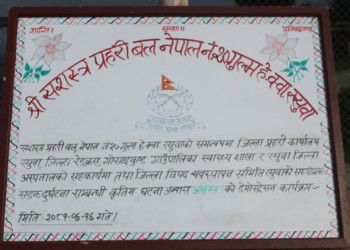 शान्ति। सुरक्षा। प्रतिबद्धता।
श्री सशस्त्र प्रहरी बल नेपाल नं २० गुल्म हे.क्वा रसुवा
सशस्त्र प्रहरी बल, नेपाल नं २० गुल्म हे.क्वा रसुवाको समन्वयमा जिल्ला प्रहरी कार्यालय
रसुवा, जिल्ला रेडक्रस, गोसाइकुण्ड गाउँपालिका स्वास्थ्य शाखा र रसुवा जिल्ला
अस्पतालको सहकार्यमा तथा जिल्ला विपद व्यवस्थापन समिति रसुवाको
सडक दुर्घटना सम्बन्धी कृतिम घटना अभ्यास को डेमोस्ट्रेसन कार्यक्रम-
मिति २०८१-०६-१६ गते।